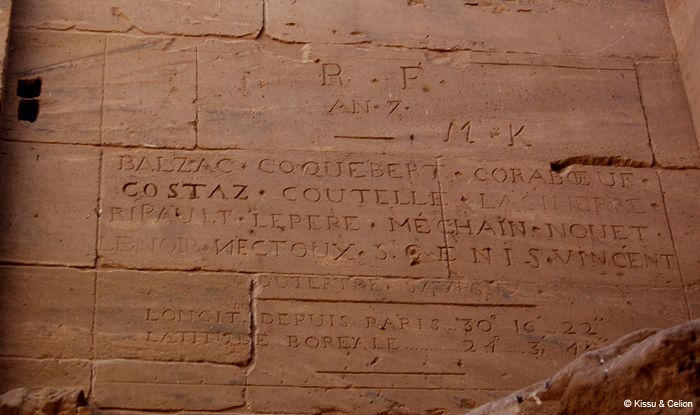 R · F ·
AN · 7 ·
M · K
BALZAC · COQUEBERT · CORABŒUF ·
COSTAZ · COUTELLE · LACIPIERRE ·
RIPAULT · LEPERE · MÉCHAIN · NOUET ·
LENOIR · NECTOUX · S · GENIS · VINCENT
DUTERTRE · SAVIGNY
LONGIT. DEPUIS PARIS ... 30° 16' 22"
LATITUDE BOREALE ... 24° 3'
© Kissu & Celion